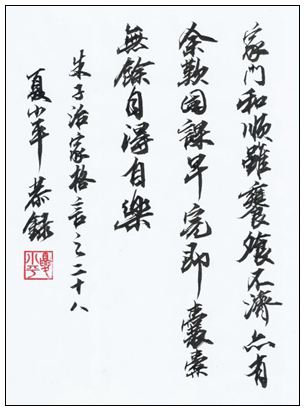 家門和順雖饔飧不濟亦有
余歡國課早完即囊橐
無餘自得自樂
朱子治家格言之二十八
夏小平恭錄
夏小平